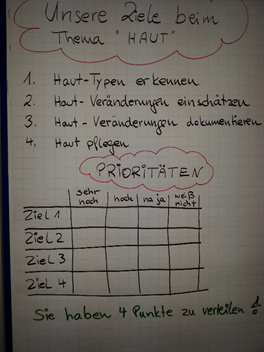 Unsere Ziele beim
Thema "HAUT"
1. Haut-Typen erkennen
2. Haut-Veränderungen einschätzen
3. Haut-Veränderungen dokumentieren
4. Haut pflegen
PRIORITÄTEN
sehr hoch | hoch | na ja | weiß nicht
Ziel 1
Ziel 2
Ziel 3
Ziel 4
Sie haben 4 Punkte zu verteilen !